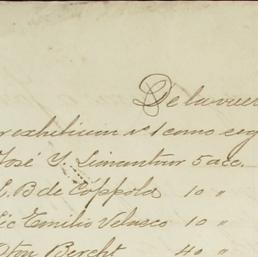 De la vuel
r exhibicion nº 1 como sig
José Y. Limantour 5 acc.
E. B de Coppola 10 "
Lic Emilio Velasco 10 "
Othon Brecht 40 "